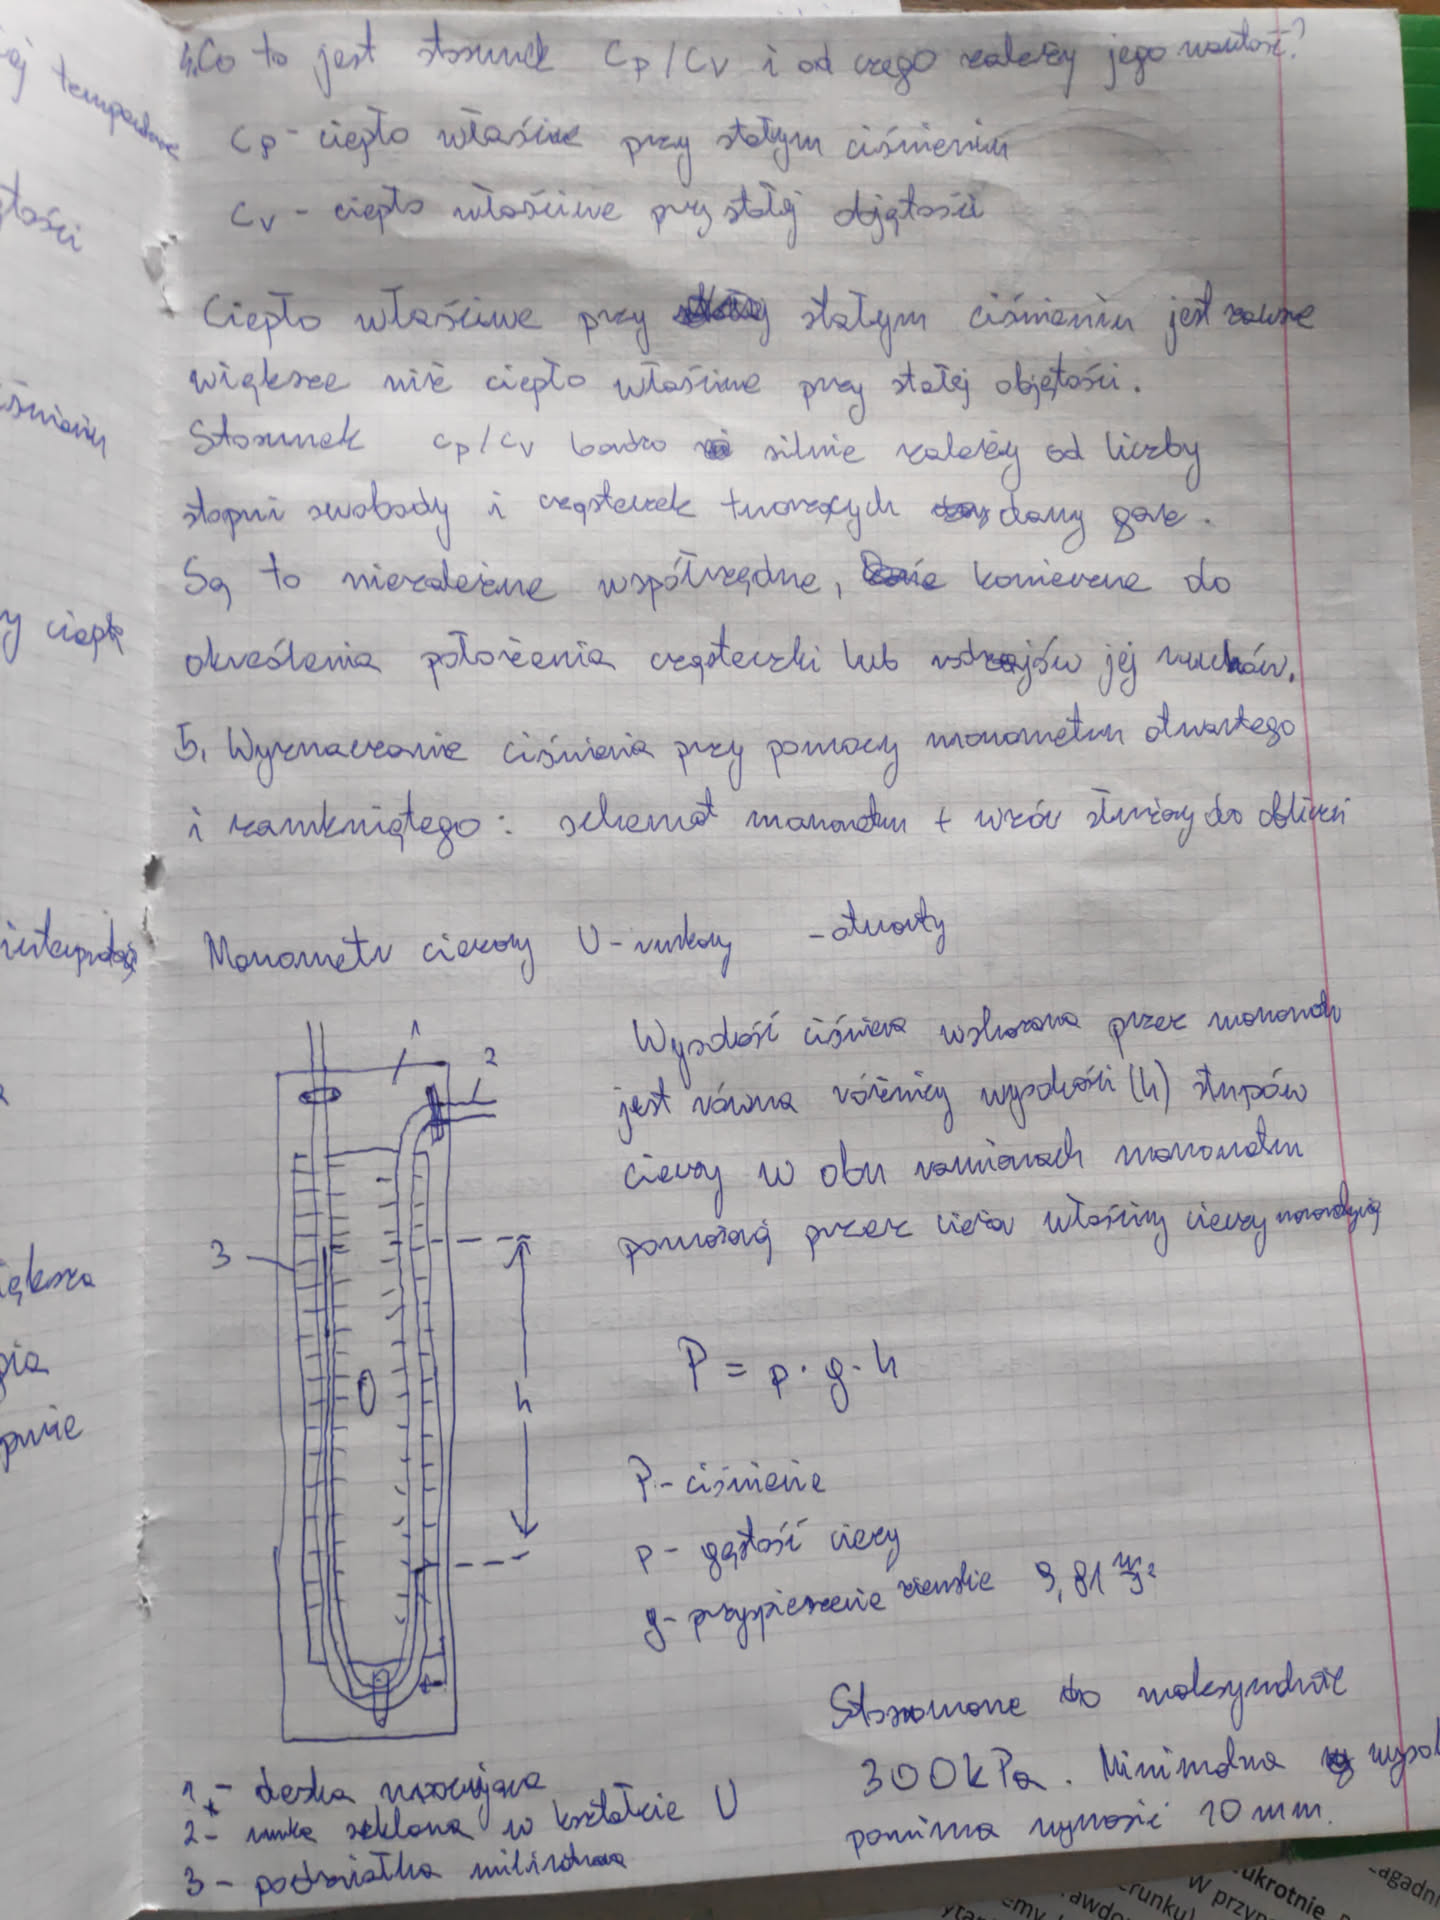 4. Co to jest stosunek Cp/Cv i od czego zależy jego wartość?
Cp - ciepło właściwe przy stałym ciśnieniu
Cv - ciepło właściwe przy stałej objętości
Ciepło właściwe przy stałym ciśnieniu jest zawsze
większe niż ciepło właściwe przy stałej objętości.
Stosunek cp/cv bardzo silnie zależy od liczby
stopni swobody i cząsteczek tworzących dany gaz.
Są to niezależne współrzędne, konieczne do
określenia położenia cząsteczki lub rodzajów jej ruchów.
5. Wyznaczanie ciśnienia przy pomocy manometru otwartego
i zamkniętego: schemat manometru + wzór służący do obliczeń
Manometr cieczowy U-rurkowy - otwarty
1
2
3
h
0
Wysokość ciśnienia wskazana przez manometr
jest równa różnicy wysokości (h) słupów
cieczy w obu ramionach manometru
pomnożonej przez ciężar właściwy cieczy
P = p · g · h
P - ciśnienie
p - gęstość cieczy
g - przyspieszenie ziemskie 9,81 m/s²
Stosowane do maksymalnie
300kPa. Minimalna
powinna wynosić 10 mm.
1 - deska mocująca
2 - rurka szklana w kształcie U
3 - podziałka milimetrowa
ej temperaturze
tości
iśnieniu
y ciepłą
większa
gia
pnie
ukrotnie
W przyp
erunku)
awdo
agadni